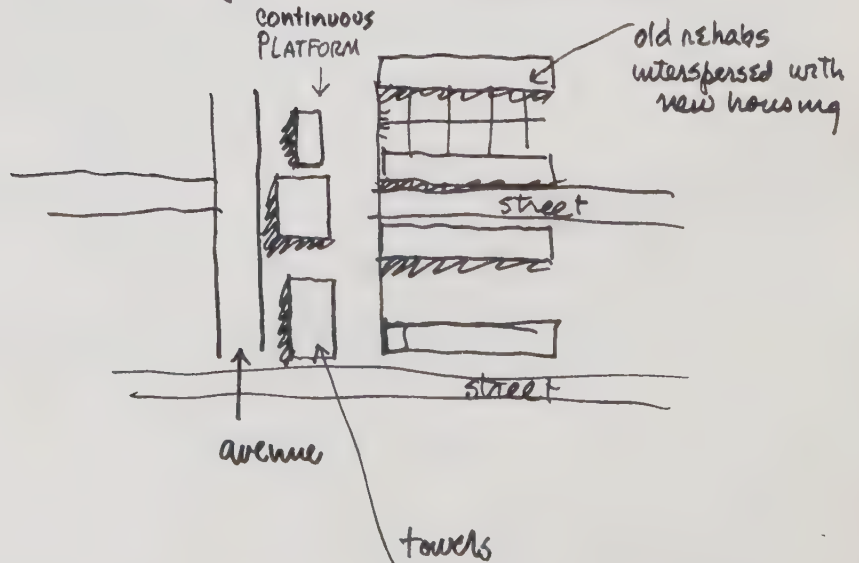 continuous
PLATFORM
old rehabs
interspersed with
new housing
street
street
avenue
towers